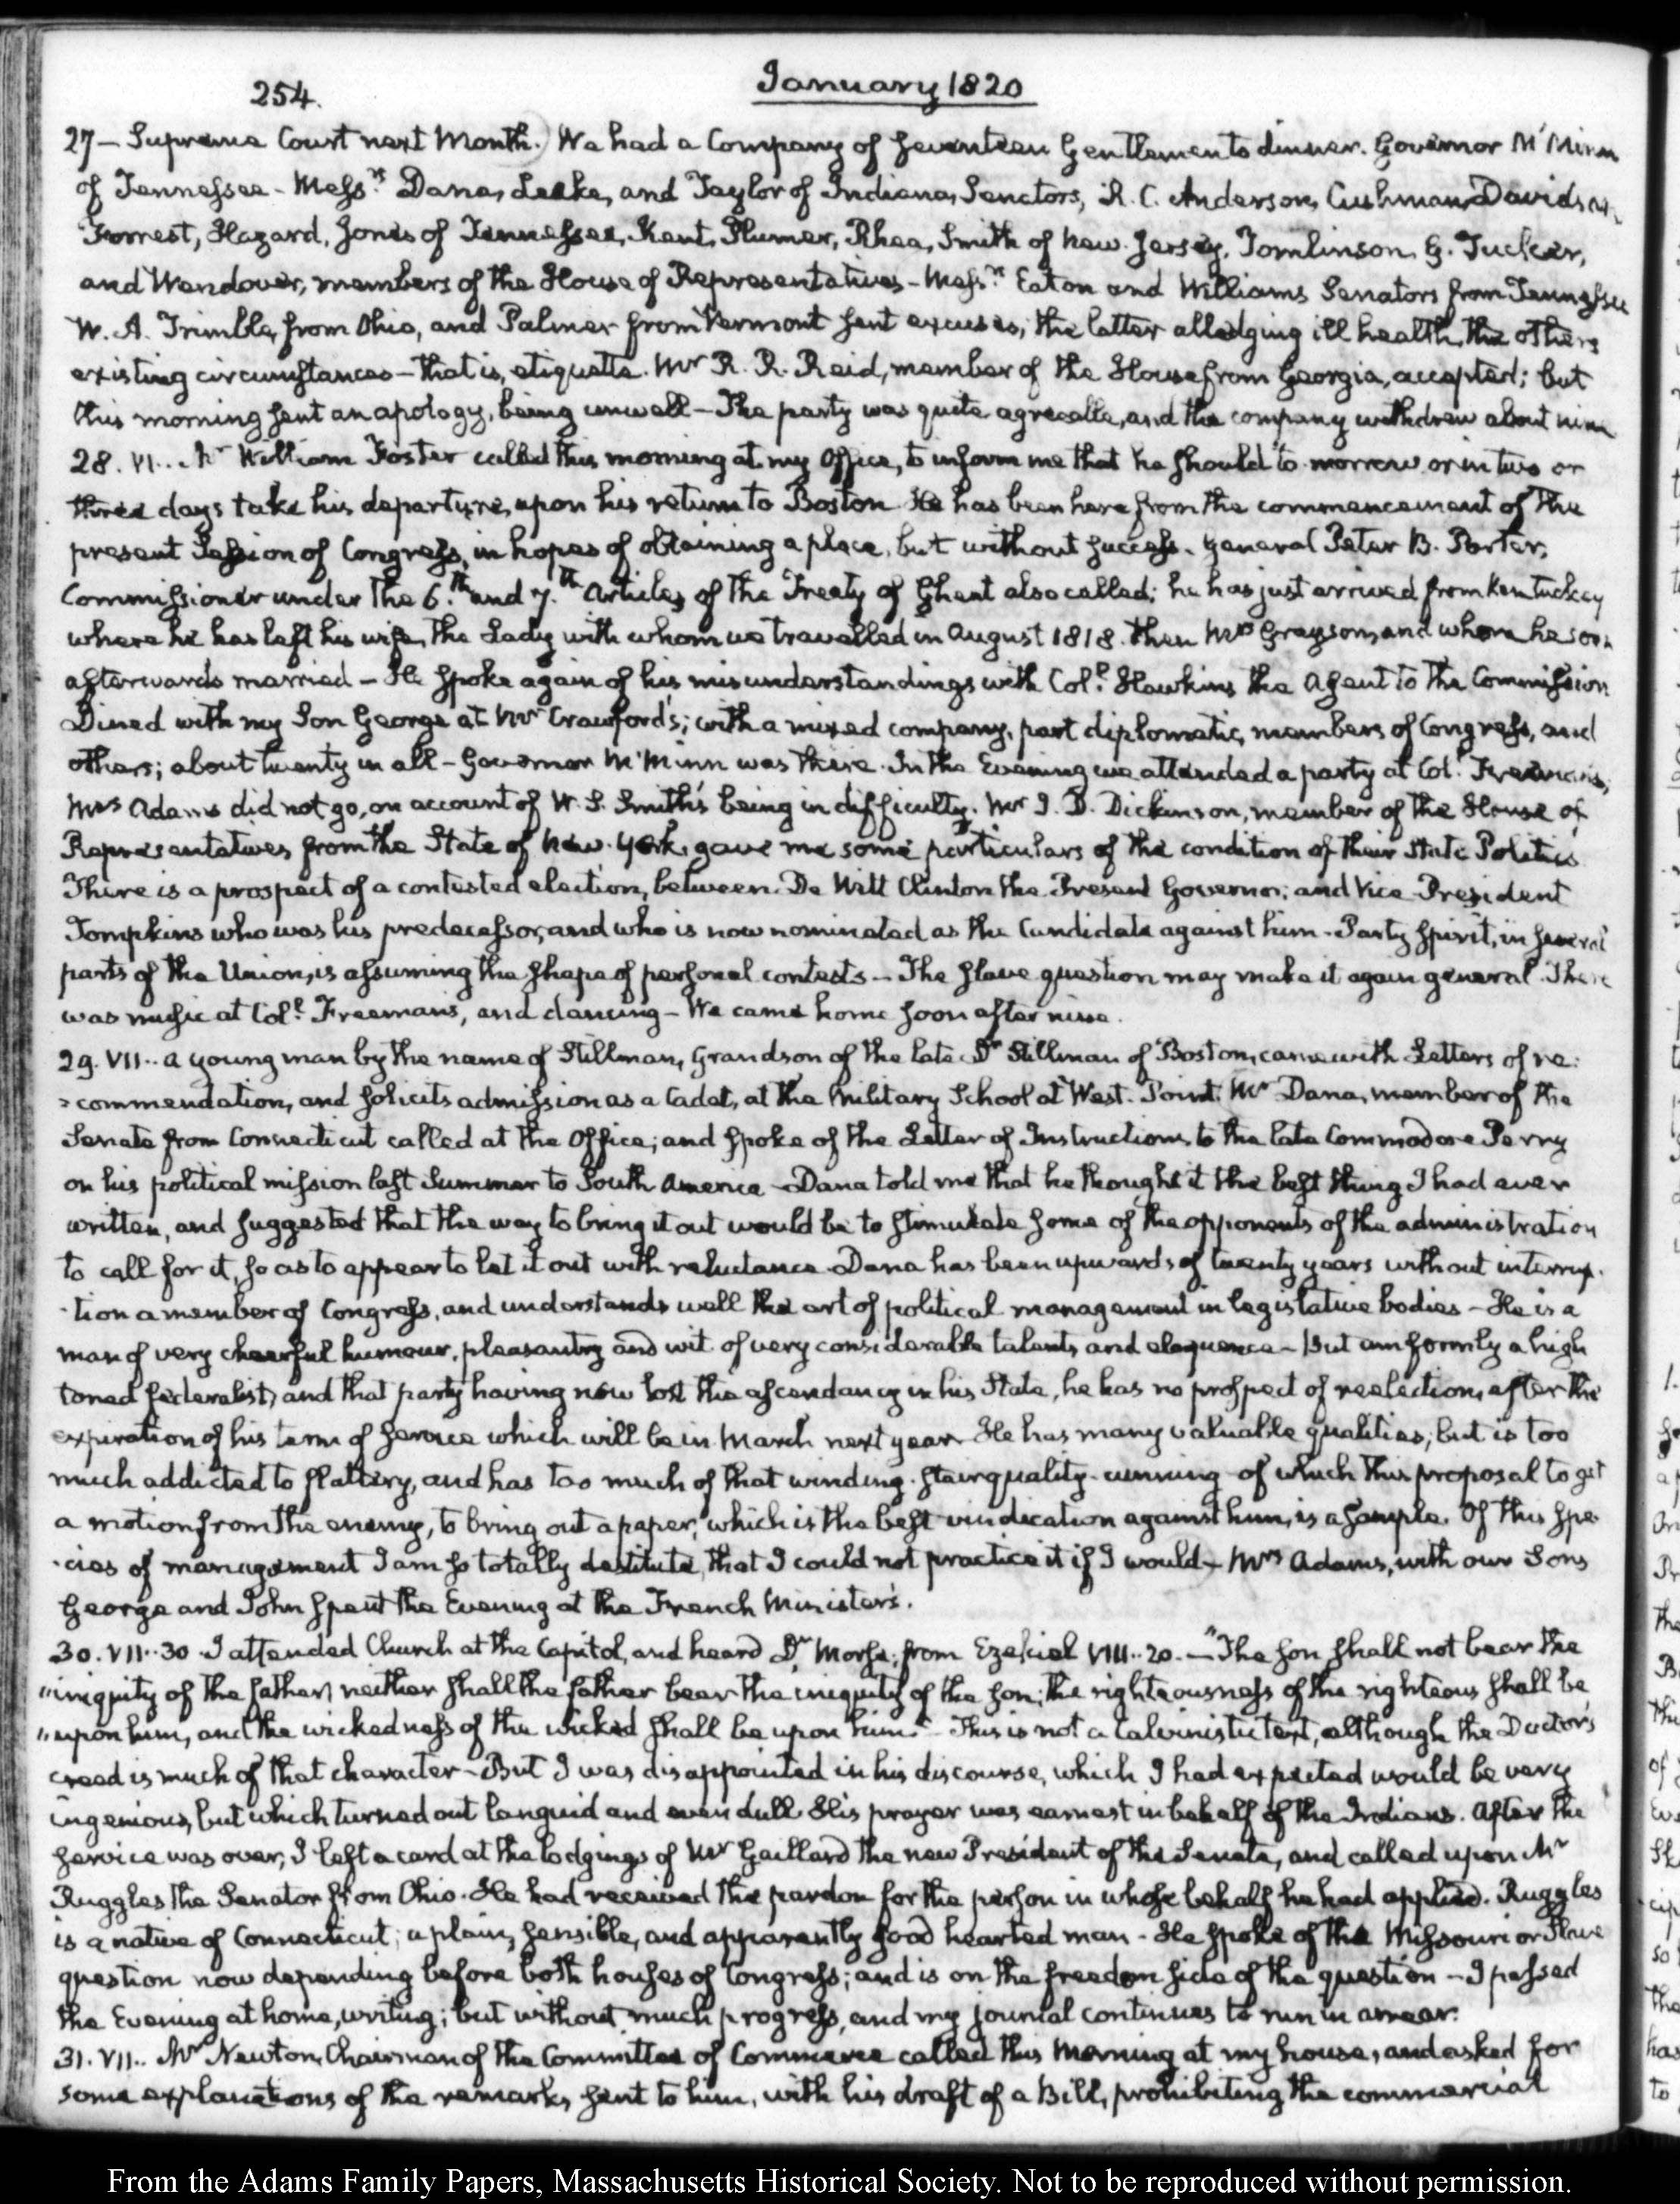 254.
January 1820
27 — Supreme Court next Month.) We had a Company of seventeen Gentlemen to dinner. Governor McMinn
of Tennessee — Messrs Dana, Leake, and Taylor of Indiana, Senators, R. C. Anderson, Cushman, Davidson,
Forrest, Hazard, Jones of Tennessee, Kent, Plumer, Rhea, Smith of New-Jersey, Tomlinson, G. Tucker,
and Wendover, members of the House of Representatives — Messrs Eaton and Williams Senators from Tennessee
W. A. Trimble, from Ohio, and Palmer from Vermont sent excuses, the latter alledging ill health, the others
existing circumstances — that is, etiquette. Mr R. R. Reid, member of the House from Georgia, accepted; but
this morning sent an apology, being unwell — The party was quite agreeable, and the company withdrew about nine
28. VI.. Mr William Foster called this morning at my Office, to inform me that he should to-morrow or in two or
three days take his departure, upon his return to Boston. He has been here from the commencement of the
present Session of Congress, in hopes of obtaining a place, but without success. General Peter B. Porter,
Commissioner under the 6.th and 7.th Articles of the Treaty of Ghent also called; he has just arrived from Kentuckey
where he has left his wife, the Lady with whom we travelled in August 1818. then Mrs Grayson, and whom he soon
afterwards married — He spoke again of his misunderstandings with Coll. Hawkins the Agent to the Commission
Dined with my Son George at Mr Crawford's; with a mixed company, part diplomatic, members of Congress, and
others; about twenty in all — Governor McMinn was there. In the Evening we attended a party at Coll. Freeman's,
Mrs Adams did not go, on account of W. S. Smith's being in difficulty. Mr J. D. Dickinson, member of the House of
Representatives from the State of New-York, gave me some particulars of the condition of their State Politics
There is a prospect of a contested election, between De Witt Clinton the Present Governor; and Vice-President
Tompkins who was his predecessor, and who is now nominated as the Candidate against him. Party Spirit, in several
parts of the Union, is assuming the shape of personal contests — The slave question may make it again general. There
was music at Coll. Freeman's, and dancing — We came home soon after nine.
29. VII.. A young man by the name of Stillman, Grandson of the late Dr Stillman of Boston, came with Letters of re:
:commendation, and solicits admission as a Cadet, at the Military School at West-Point. Mr Dana, member of the
Senate from Connecticut called at the Office; and spoke of the Letter of Instructions to the late Commodore Perry
on his political mission last Summer to South America — Dana told me that he thought it the best thing I had ever
written, and suggested that the way to bring it out would be to stimulate some of the opponents of the administration
to call for it, so as to appear to let it out with reluctance. Dana has been upwards of twenty years without interrup-
-tion a member of Congress, and understands well the art of political management in legislative bodies — He is a
man of very cheerful humour, pleasantry and wit. of very considerable talents and eloquence — But uniformly a high
toned federalist, and that party having now lost the ascendancy in his State, he has no prospect of reelection, after the
expiration of his term of service which will be in March next year. He has many valuable qualities; but is too
much addicted to flattery, and has too much of that winding-stair quality-cunning of which this proposal to get
a motion from the enemy, to bring out a paper, which is the best vindication against him, is a sample. Of this spe-
-cies of management I am so totally destitute, that I could not practice it if I would — Mrs Adams, with our Sons
George and John spent the Evening at the French Minister's.
30. VII..30. I attended Church at the Capitol, and heard Dr Morse, from Ezekiel VIII..20. — "The son shall not bear the
"iniquity of the father, neither shall the father bear the iniquity of the son; the righteousness of the righteous shall be
"upon him, and the wickedness of the wicked shall be upon him." This is not a Calvinistic text, although the Doctor's
creed is much of that character — But I was disappointed in his discourse, which I had expected would be very
ingenious, but which turned out languid and even dull. His prayer was earnest in behalf of the Indians. After the
service was over, I left a card at the lodgings of Mr Gaillard the new President of the Senate, and called upon Mr
Ruggles the Senator from Ohio. He had received the pardon for the person in whose behalf he had applied. Ruggles
is a native of Connecticut; a plain, sensible, and apparently good hearted man — He spoke of the Missouri or Slave
question now depending before both houses of Congress; and is on the freedom side of the question — I passed
the Evening at home, writing; but without much progress, and my journal continues to run in arrear.
31. VII.. Mr Newton, Chairman of the Committee of Commerce called this Morning at my house, and asked for
some explanations of the remarks, sent to him, with his draft of a Bill, prohibiting the commercial
From the Adams Family Papers, Massachusetts Historical Society. Not to be reproduced without permission.